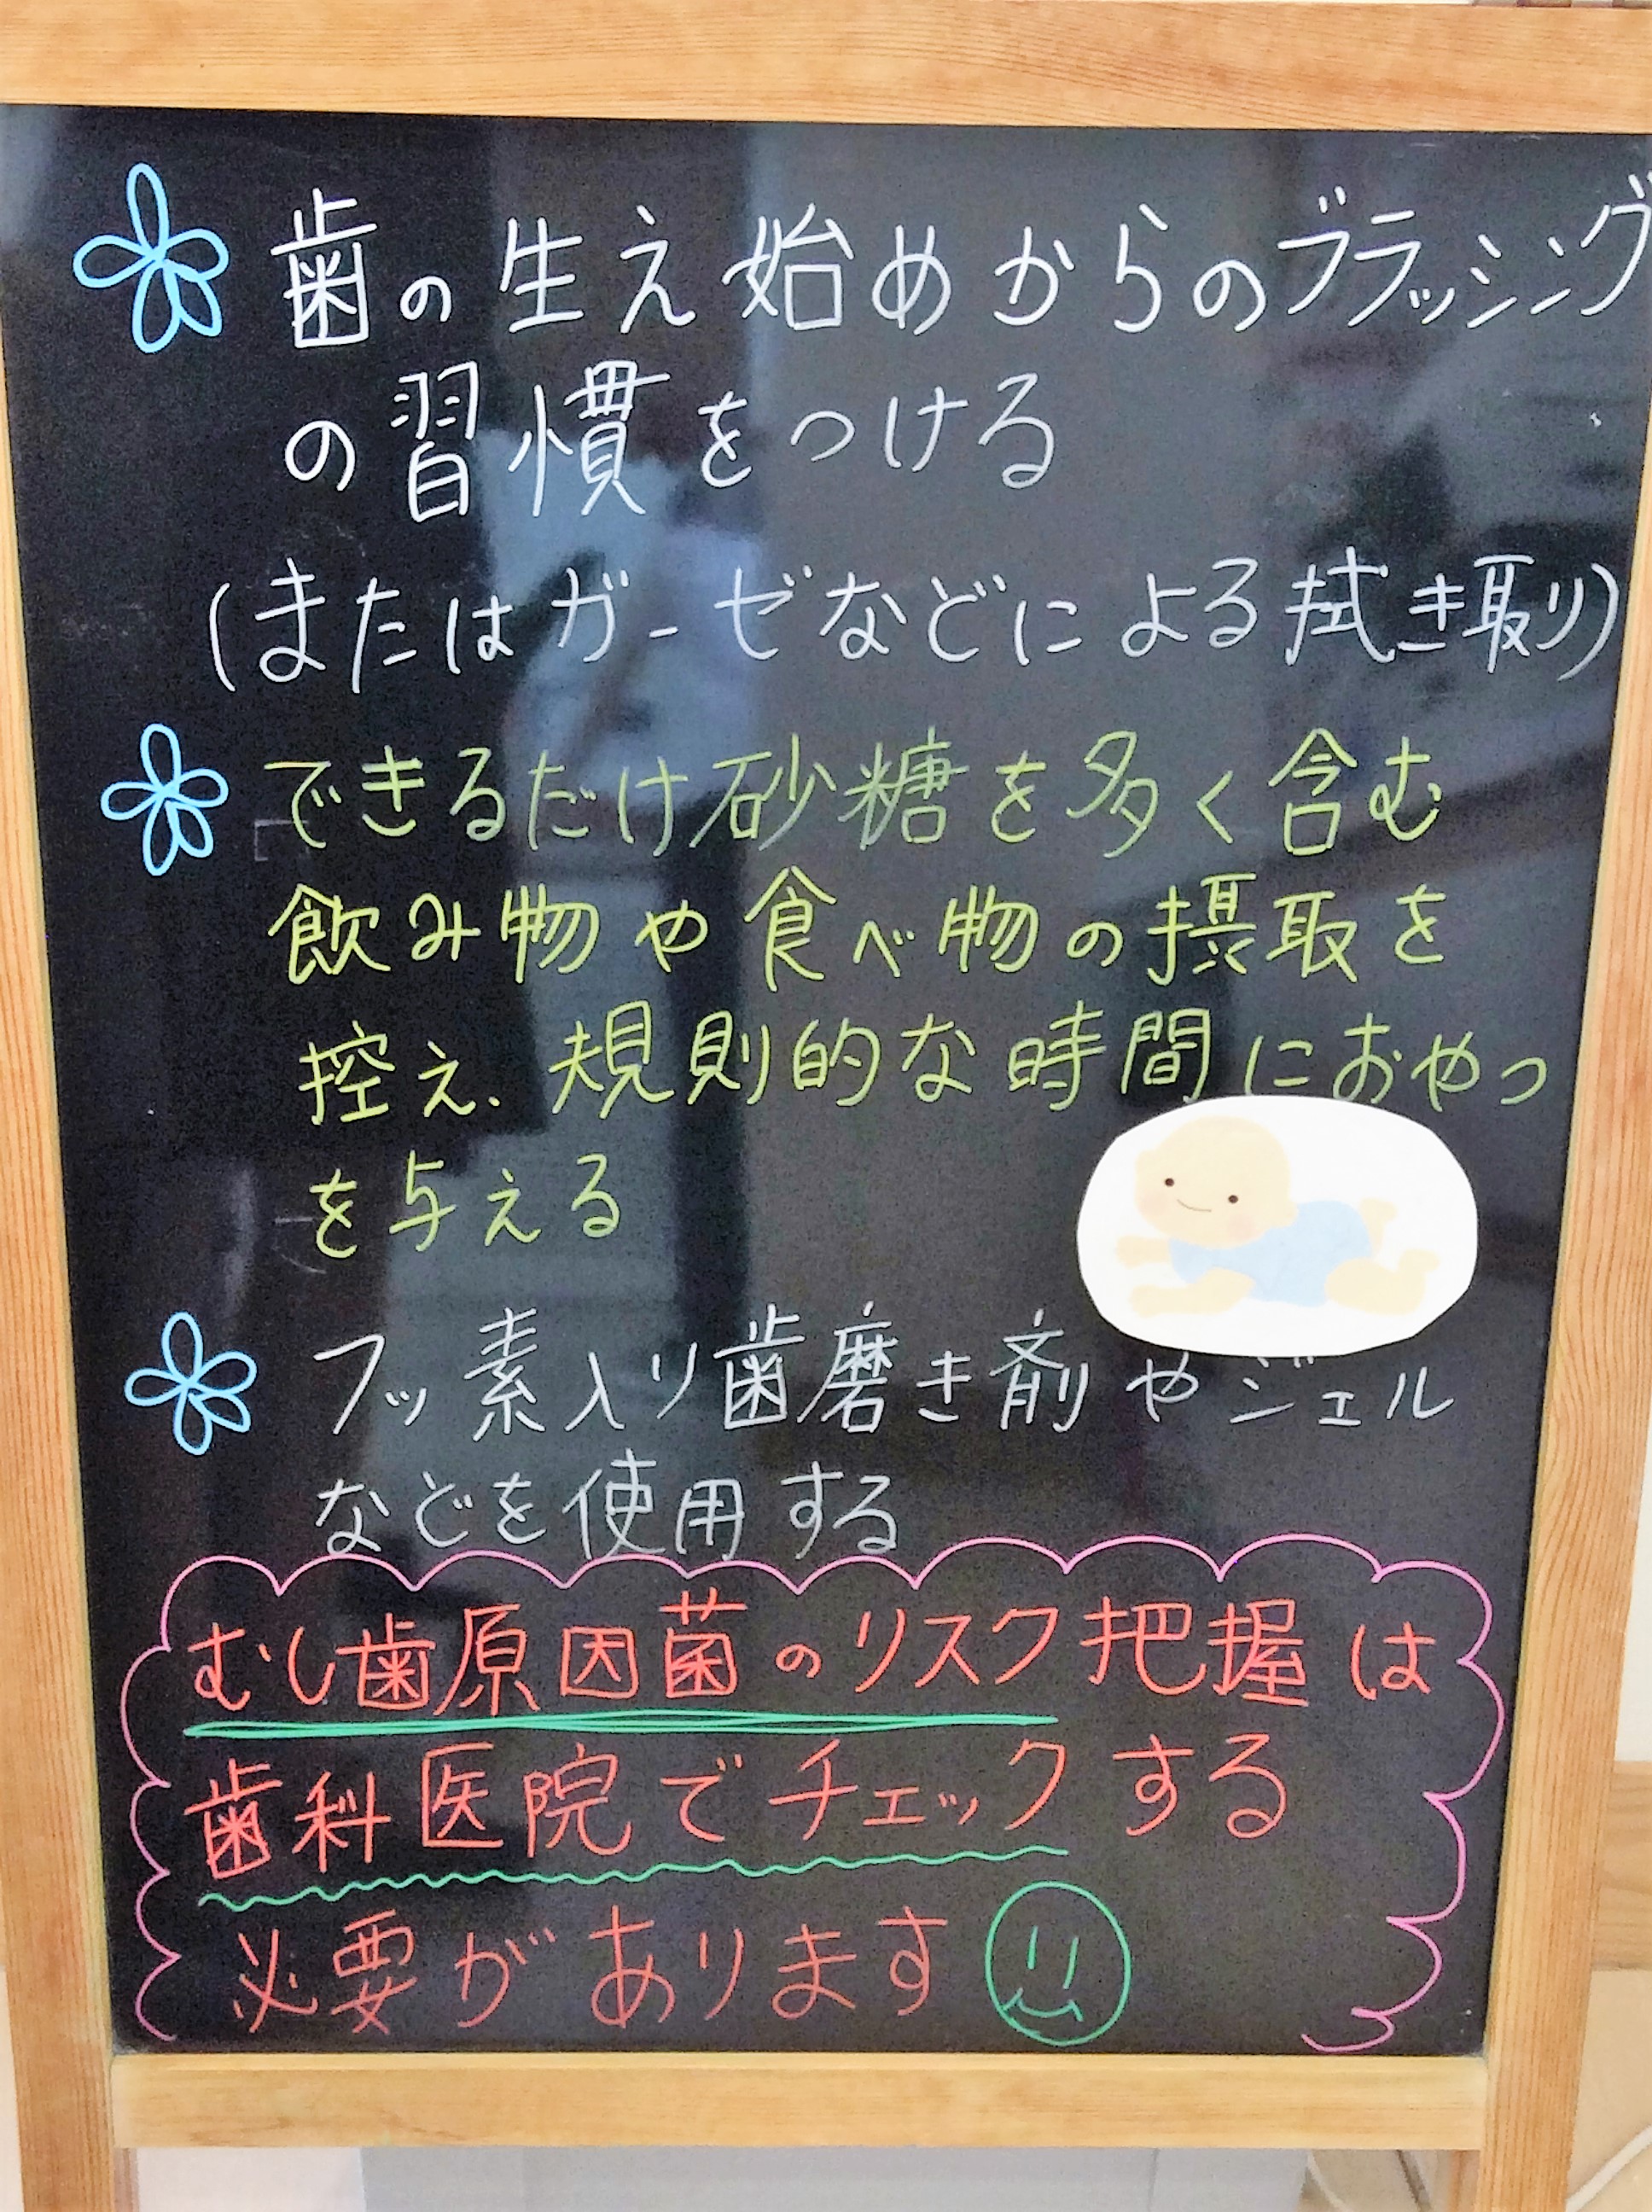 歯の生え始めからのブラッシング
の習慣をつける
(またはガーゼなどによる拭き取り)
できるだけ砂糖を多く含む
飲み物や食べ物の摂取を
控え、規則的な時間におやつ
を与える
フッ素入り歯磨き剤やジェル
などを使用する
むし歯原因菌のリスク把握は
歯科医院でチェックする
必要があります